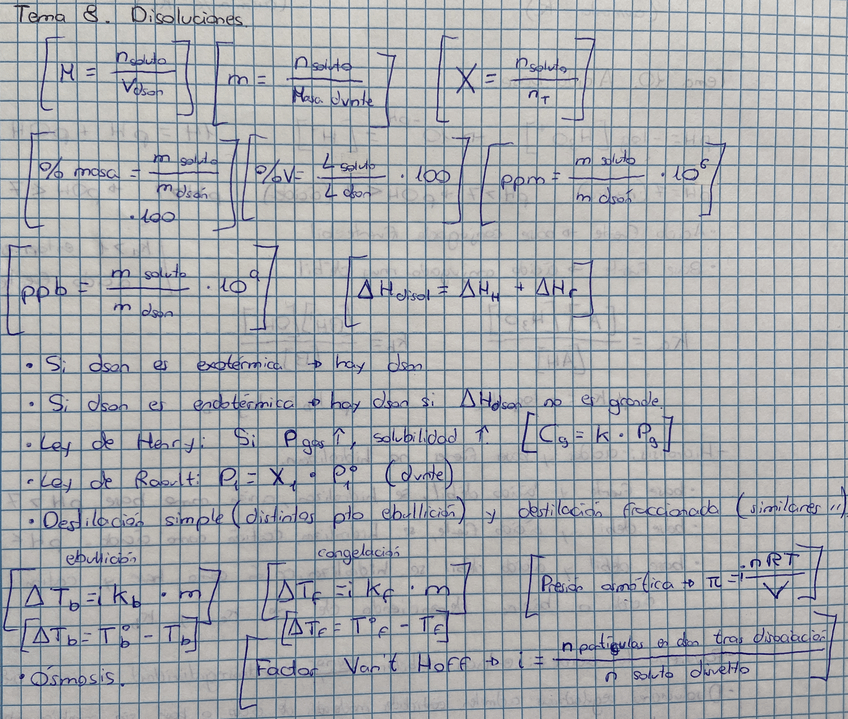 Tema 8. Disoluciones.
[M = n soluto / V dson] [m = n soluto / Masa dvnte] [X = n soluto / nT]
[% masa = m soluto / m dson · 100] [%V = L soluto / L dson · 100] [ppm = m soluto / m dson · 10⁶]
[ppb = m soluto / m dson · 10⁹] [ΔHdisol = ΔHH + ΔHf]
· Si dson es exotérmica → hay dson
· Si dson es endotérmica → hay dson si ΔHdson no es grande.
· Ley de Henry: Si Pgas ↑, solubilidad ↑ [Cg = k · Pg]
· Ley de Raoult: P₁ = X₁ · P₁° (dvnte)
· Destilación simple (distintos pto ebullición) y destilación fraccionada (similares ")
ebullición congelación
[ΔTb = i Kb · m] [ΔTf = i Kf · m] [Presión osmótica → π = i · nRT / V]
[ΔTb = Tb° - Tb] [ΔTf = T°f - Tf]
· Ósmosis. [Factor Van't Hoff → i = n partículas en dson tras disociación / n soluto disuelto]